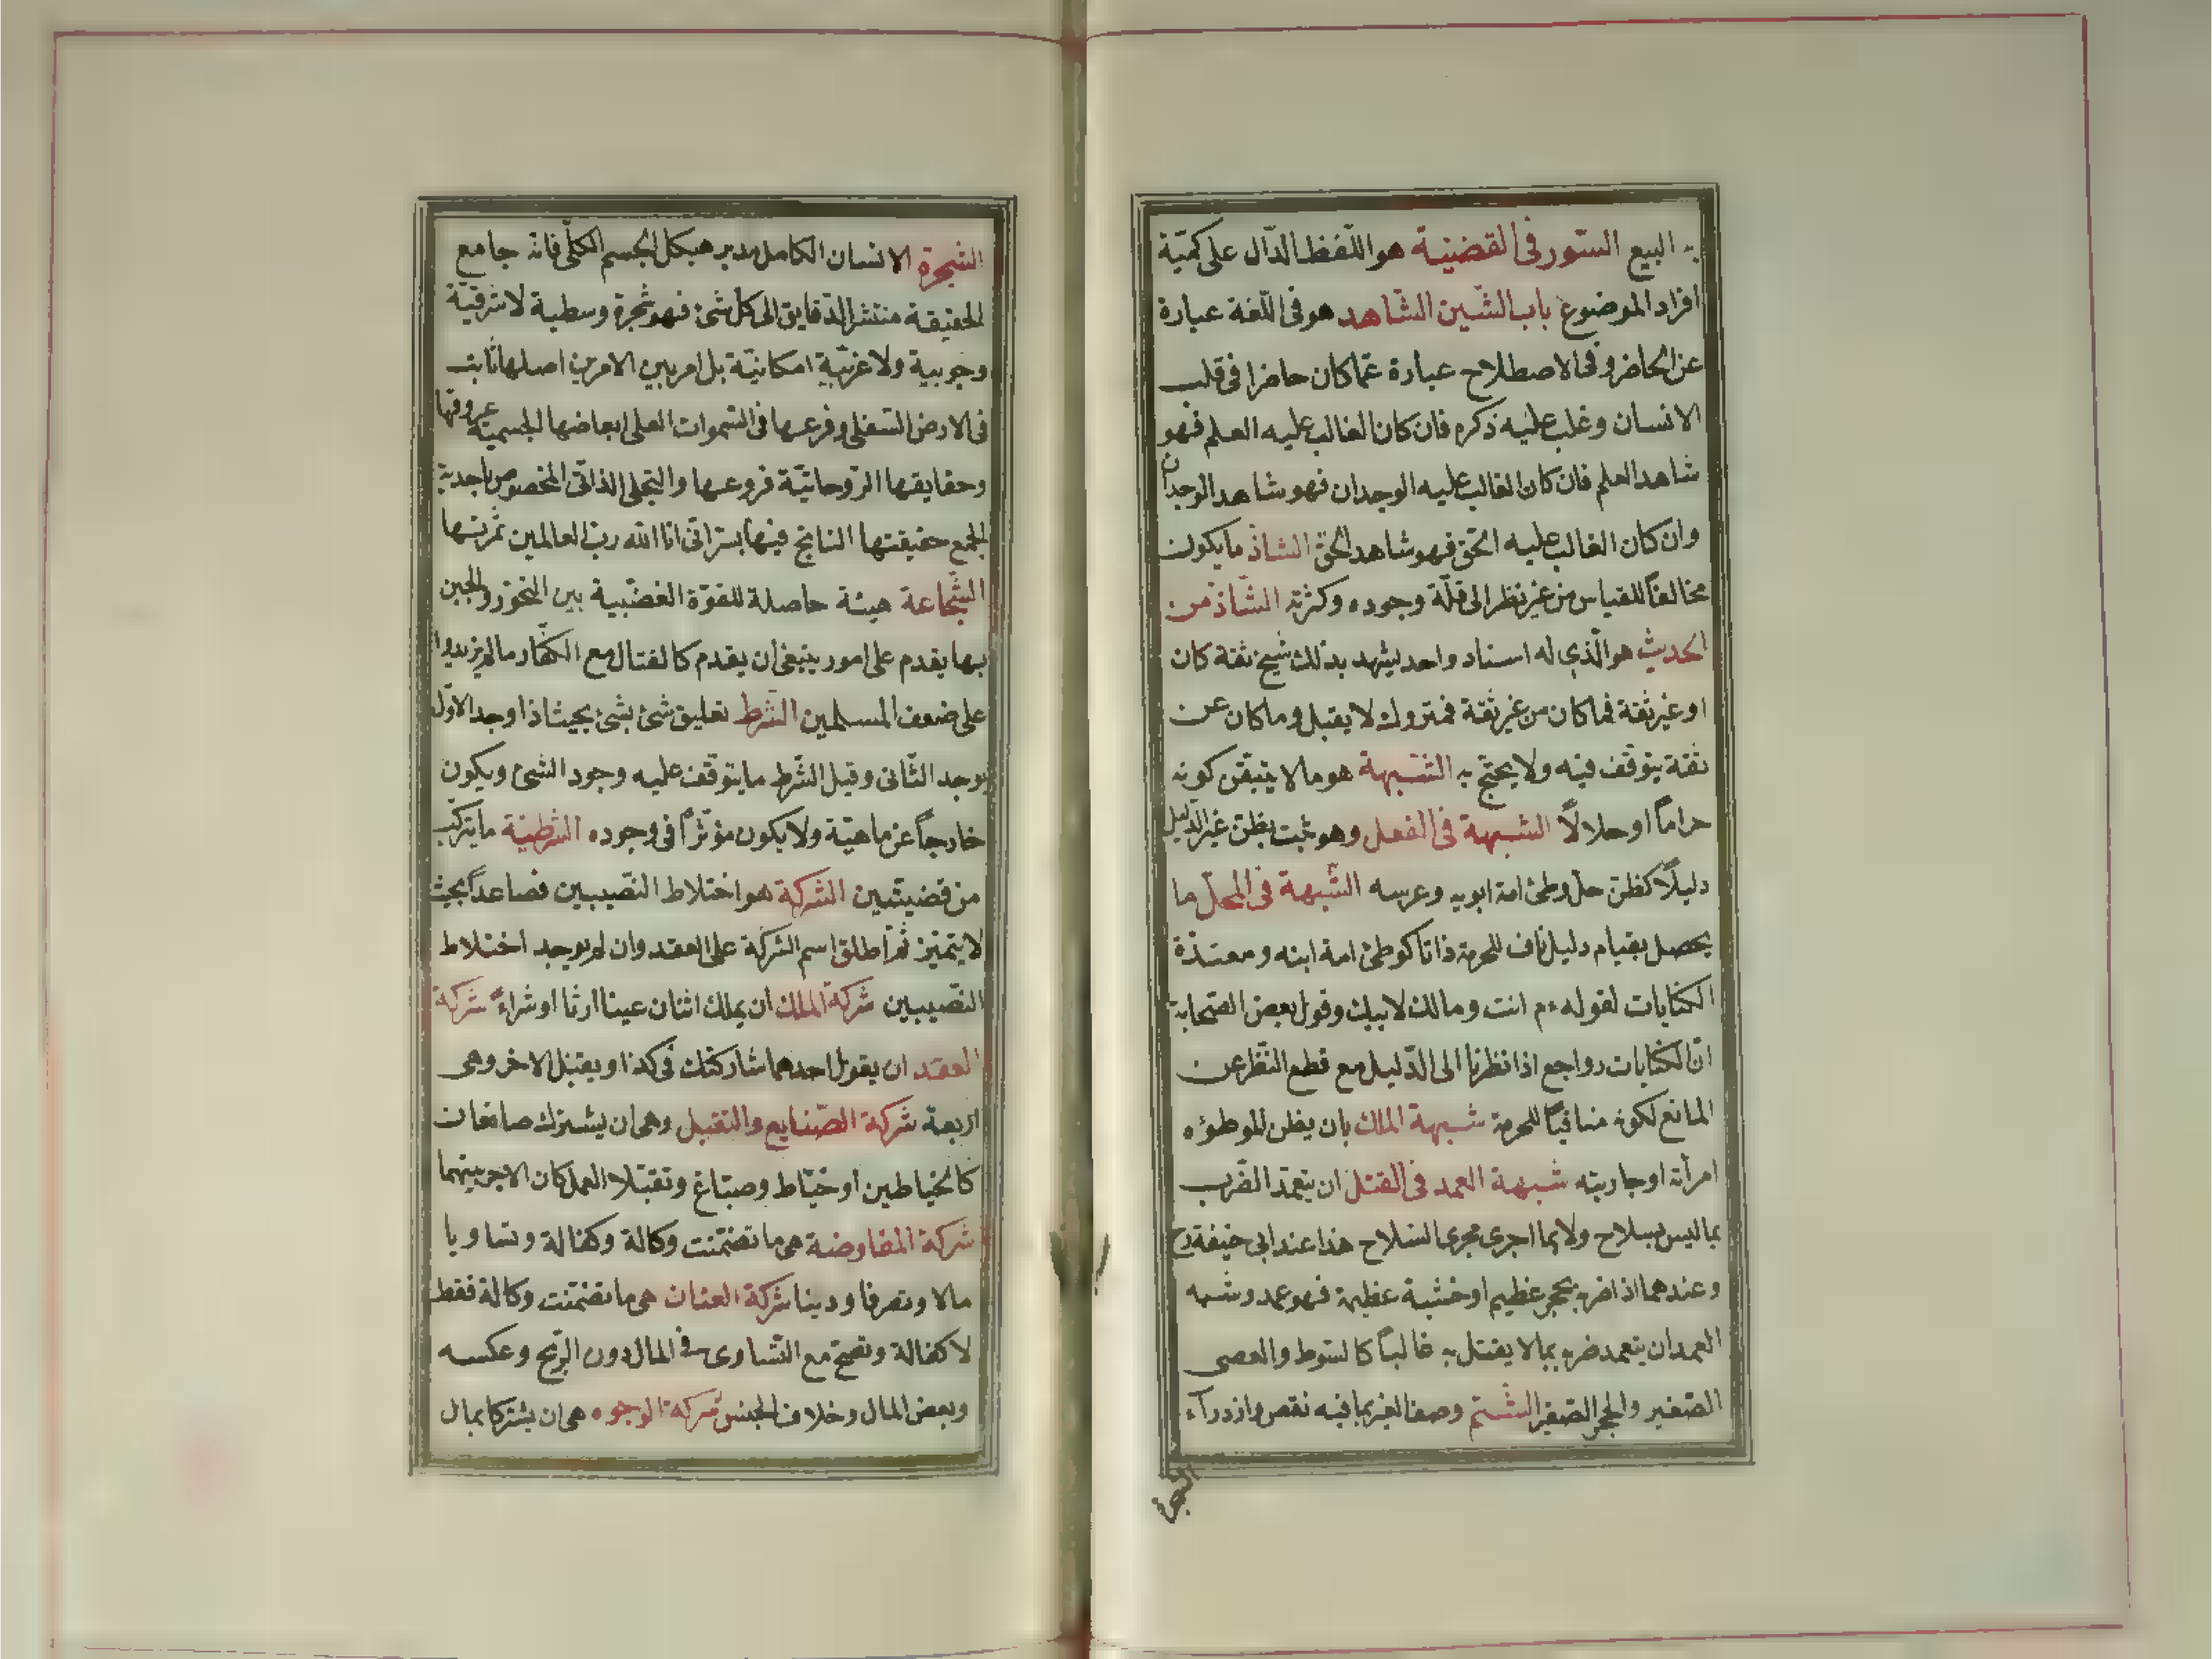 به البيع السّور فى القضيّة هو اللّفظ الدّال على كميّة
افراد الموضوع باب الشّين الشّاهد هو فى اللّغة عبارة
عن الحاضر وفى الاصطلاح عبارة عمّا كان حاضرا فى قلب
الانسان وغلب عليه ذكره فان كان الغالب عليه العلم فهو
شاهد العلم فان كان الغالب عليه الوجدان فهو شاهد الوجدان
وان كان الغالب عليه الحقّ فهو شاهد الحقّ الشاذ ما يكون
مخالفاً للقياس من غير نظر الى قلّة وجوده وكثرته الشّاذ من
الحديث هو الّذى له اسناد واحد يشهد بذلك شيخ ثقة كان
او غير ثقة فما كان من غير ثقة فمتروك لا يقبل وما كان عن
ثقة يتوقّف فيه ولا يحتجّ به الشّبهة هو ما لا يتيقّن كونه
حراماً او حلالاً الشّبهة فى الفعل وهو ثبت بظنّ غير الدّليل
دليلاً كظنّ حلّ وطئ امة ابويه وعرسه الشّبهة فى المحلّ ما
يحصل بقيام دليل ناف للحرمة ذاتا كوطئ امة ابنه ومعتدّة
الكنايات لقوله ءم انت ومالك لابيك وقول بعض الصّحابة
انّ الكنايات رواجع اذا نظرنا الى الدّليل مع قطع النّظر عن
المانع لكونه منافياً للحرمة شبهة الملك بان يظن الموطؤه
امرأته او جاريته شبهة العمد فى القتل ان يتعمّد الضّرب
بما ليس بسلاح ولا بما اجرى مجرى السّلاح هذا عند ابى حنيفة رح
وعندهما اذا ضربه بحجر عظيم او خشبة عظيمة فهو عمد وشبه
العمد ان يتعمد ضربه بما لا يقتل به غالباً كالسّوط والعصى
الصّغير والحجر الصّغير الشّتم وصف الغير بما فيه نقص وازدراء
الشجرة
الشجرة الانسان الكامل مدبر هيكل الجسم الكلّى فانه جامع
الحقيقة منتشر الدّقايق الى كل شئ فهو شجرة وسطية لا شرقيّة
وجوبية ولا غربيّة امكانيّة بل امر بين الامرين اصلها ثابت
فى الارض السّفلى وفرعها فى السّموات العلى ابعاضها الجسميّة عروقها
وحقايقها الرّوحانيّة فروعها والتجلى الذاتى المخصوص باحدية
الجمع حقيقتها الناتج فيها بسرّ انى انا الله ربّ العالمين ثمرتها
الشّجاعة هيئة حاصلة للقوّة الغضبية بين التّهوّر والجبن
بها يقدم على امور ينبغى ان يقدم كالقتال مع الكفّار ما لم يزيدوا
على ضعف المسلمين الشّرط تعليق شئ بشئ بحيث اذا وجد الاوّل
يوجد الثّانى وقيل الشّرط ما يتوقّف عليه وجود الشئ ويكون
خارجاً عن ماهيّة ولا يكون مؤثّراً فى وجوده الشّرطيّة ما يتركّب
من قضيّتين الشّركة هو اختلاط النّصيبين فصاعداً بحيث
لا يتميّز ثمّ اطلق اسم الشركة على العقد وان لم يوجد اختلاط
النّصيبين شركة الملك ان يملك اثنان عينا ارثا او شراءً شركة
العقد ان يقول احدهما شاركتك فى كذا ويقبل الاخر وهى
اربعة شركة الصّنايع والتّقبل وهى ان يشترك صانعان
كالخياطين او خيّاط وصبّاغ وتقبّلا العمل كان الاجر بينهما
شركة المفاوضة هى ما تضمّنت وكالة وكفالة وتساويا
مالا وتصرفا ودينا شركة العنان هى ما تضمّنت وكالة فقط
لا كفالة وتصحّ مع التّساوى فى المال دون الرّبح وعكسه
وبعض المال وخلاف الجنس شركة الوجوه هى ان يشتركا بمال